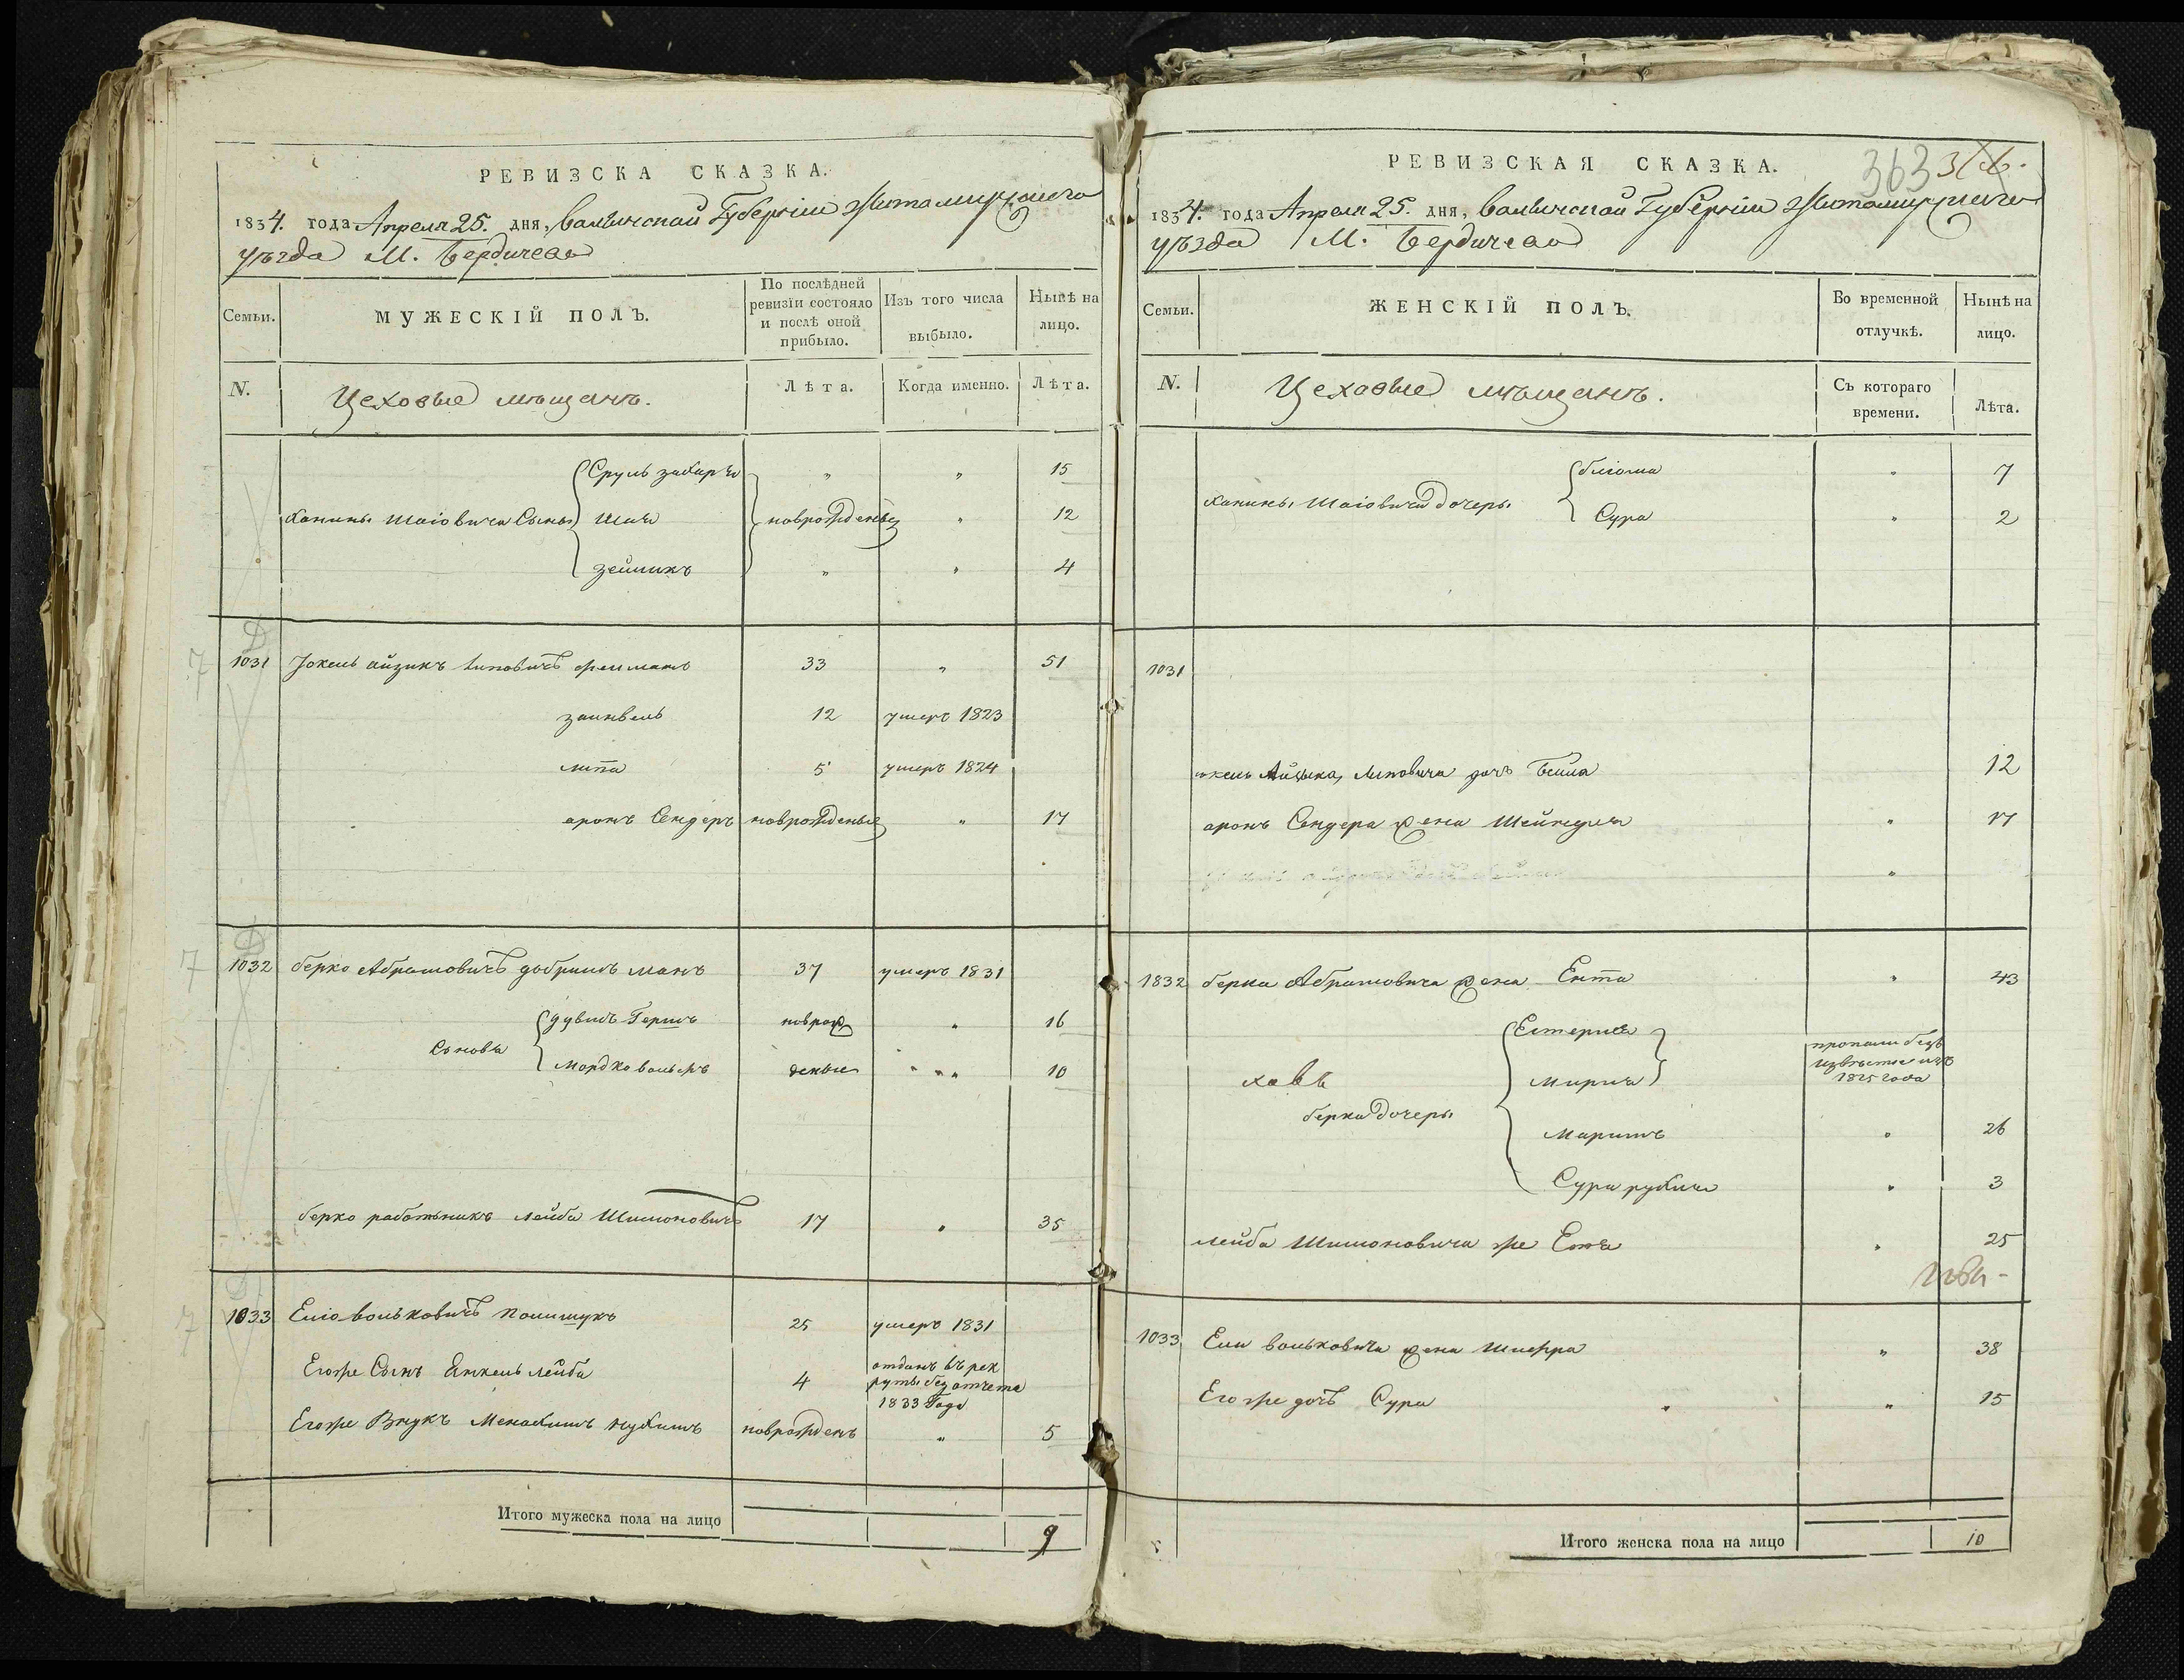 РЕВИЗСКА СКАЗКА.
1834. года Апреля 25. дня, Валынской Губернии Житомирскаго
уѣзда М. Бердичева
Семьи.
МУЖЕСКІЙ ПОЛЪ.
По послѣдней
ревизіи состояло
и послѣ оной
прибыло.
Изъ того числа
выбыло.
Нынѣ на
лицо.
N.
Цеховые мѣщанъ.
Лѣта.
Когда именно.
Лѣта.
Сруль 〃 〃 15
Ханины Шаіовича Сыны Шая новорожденые 〃 12
Зейликъ 〃 〃 4
1031 Іокель айзикъ Липовичъ 33 〃 51
занвель 12 умеръ 1823
липа 5 умеръ 1824
аронъ Сендеръ новрожденые 〃 17
1032 берко Абрамовичъ 37 умеръ 1831
Сыновя
новрож 〃 16
Мордко вольфъ деные 〃 10
берко работникъ лейба Шимоновичъ 17 〃 35
1033 Еліо вольковичъ полищукъ 25 умеръ 1831
Егоже Сынъ Янкель лейба 4 отданъ въ рек
руты без отчета
1833 Года
Егоже Внукъ новрожденъ 〃 5
Итого мужеска пола на лицо 9
РЕВИЗСКАЯ СКАЗКА.
363
1834. года Апреля 25. дня, Валынской Губернии Житомирскаго
уѣзда М. Бердичева
Семьи.
ЖЕНСКІЙ ПОЛЪ.
Во временной
отлучкѣ.
Нынѣ на
лицо.
N.
Цеховые мѣщанъ.
Съ котораго
времени.
Лѣта.
блюма 〃 7
Ханины Шаіовича дочеры
Сура 〃 2
1031
Айзика Липовича дочъ Бейла 12
аронъ Сендера жена Шейндля 〃 17
〃
1832 берка Абрамовича жена Ента 〃 43
Естерка
пропали безъ
извѣстно изъ
1825 года
берка дочеры
〃 26
Сура 〃 3
лейба Шимоновича же 〃 25
1033 Ели вольковича жена Шперра 〃 38
Егоже дочъ Сура 〃 〃 15
Итого женска пола на лицо 10